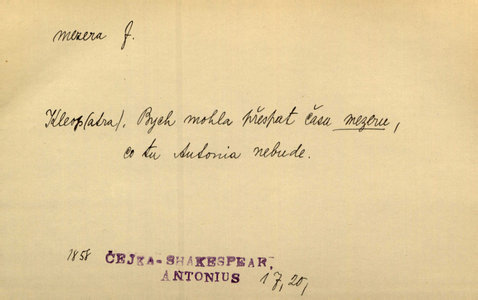 mezera f.
Kleop(atra). Bych mohla přespat času mezeru,
co tu Antonia nebude.
1858 ČEJKA-SHAKESPEAR,
ANTONIUS 1 7, 20,